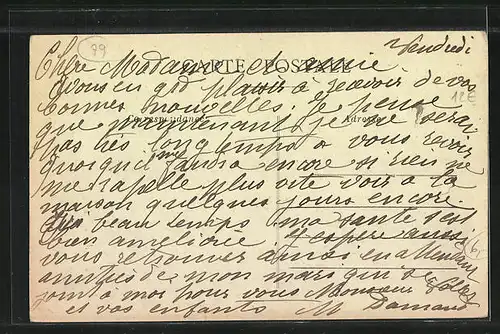 99
Vendredi
CARTE POSTALE
Chère Madame et amie
Vous en gd plaisir à recevoir de vos
bonnes nouvelles. Je pense
12E
Correspondance
Adresse
que maintenant je ne serai
pas très longtemps à vous revoir
quoiqu'il faudra encore si rien ne
me rapelle plus vite voir à la
maison quelques jours encore
beau temps ma santé s'est
bien améliorée J'espère aussi
vous retrouver ainsi en attendant
amitiés de mon mari qui se
joint à moi pour vous Monsieur
et vos enfants M Damard